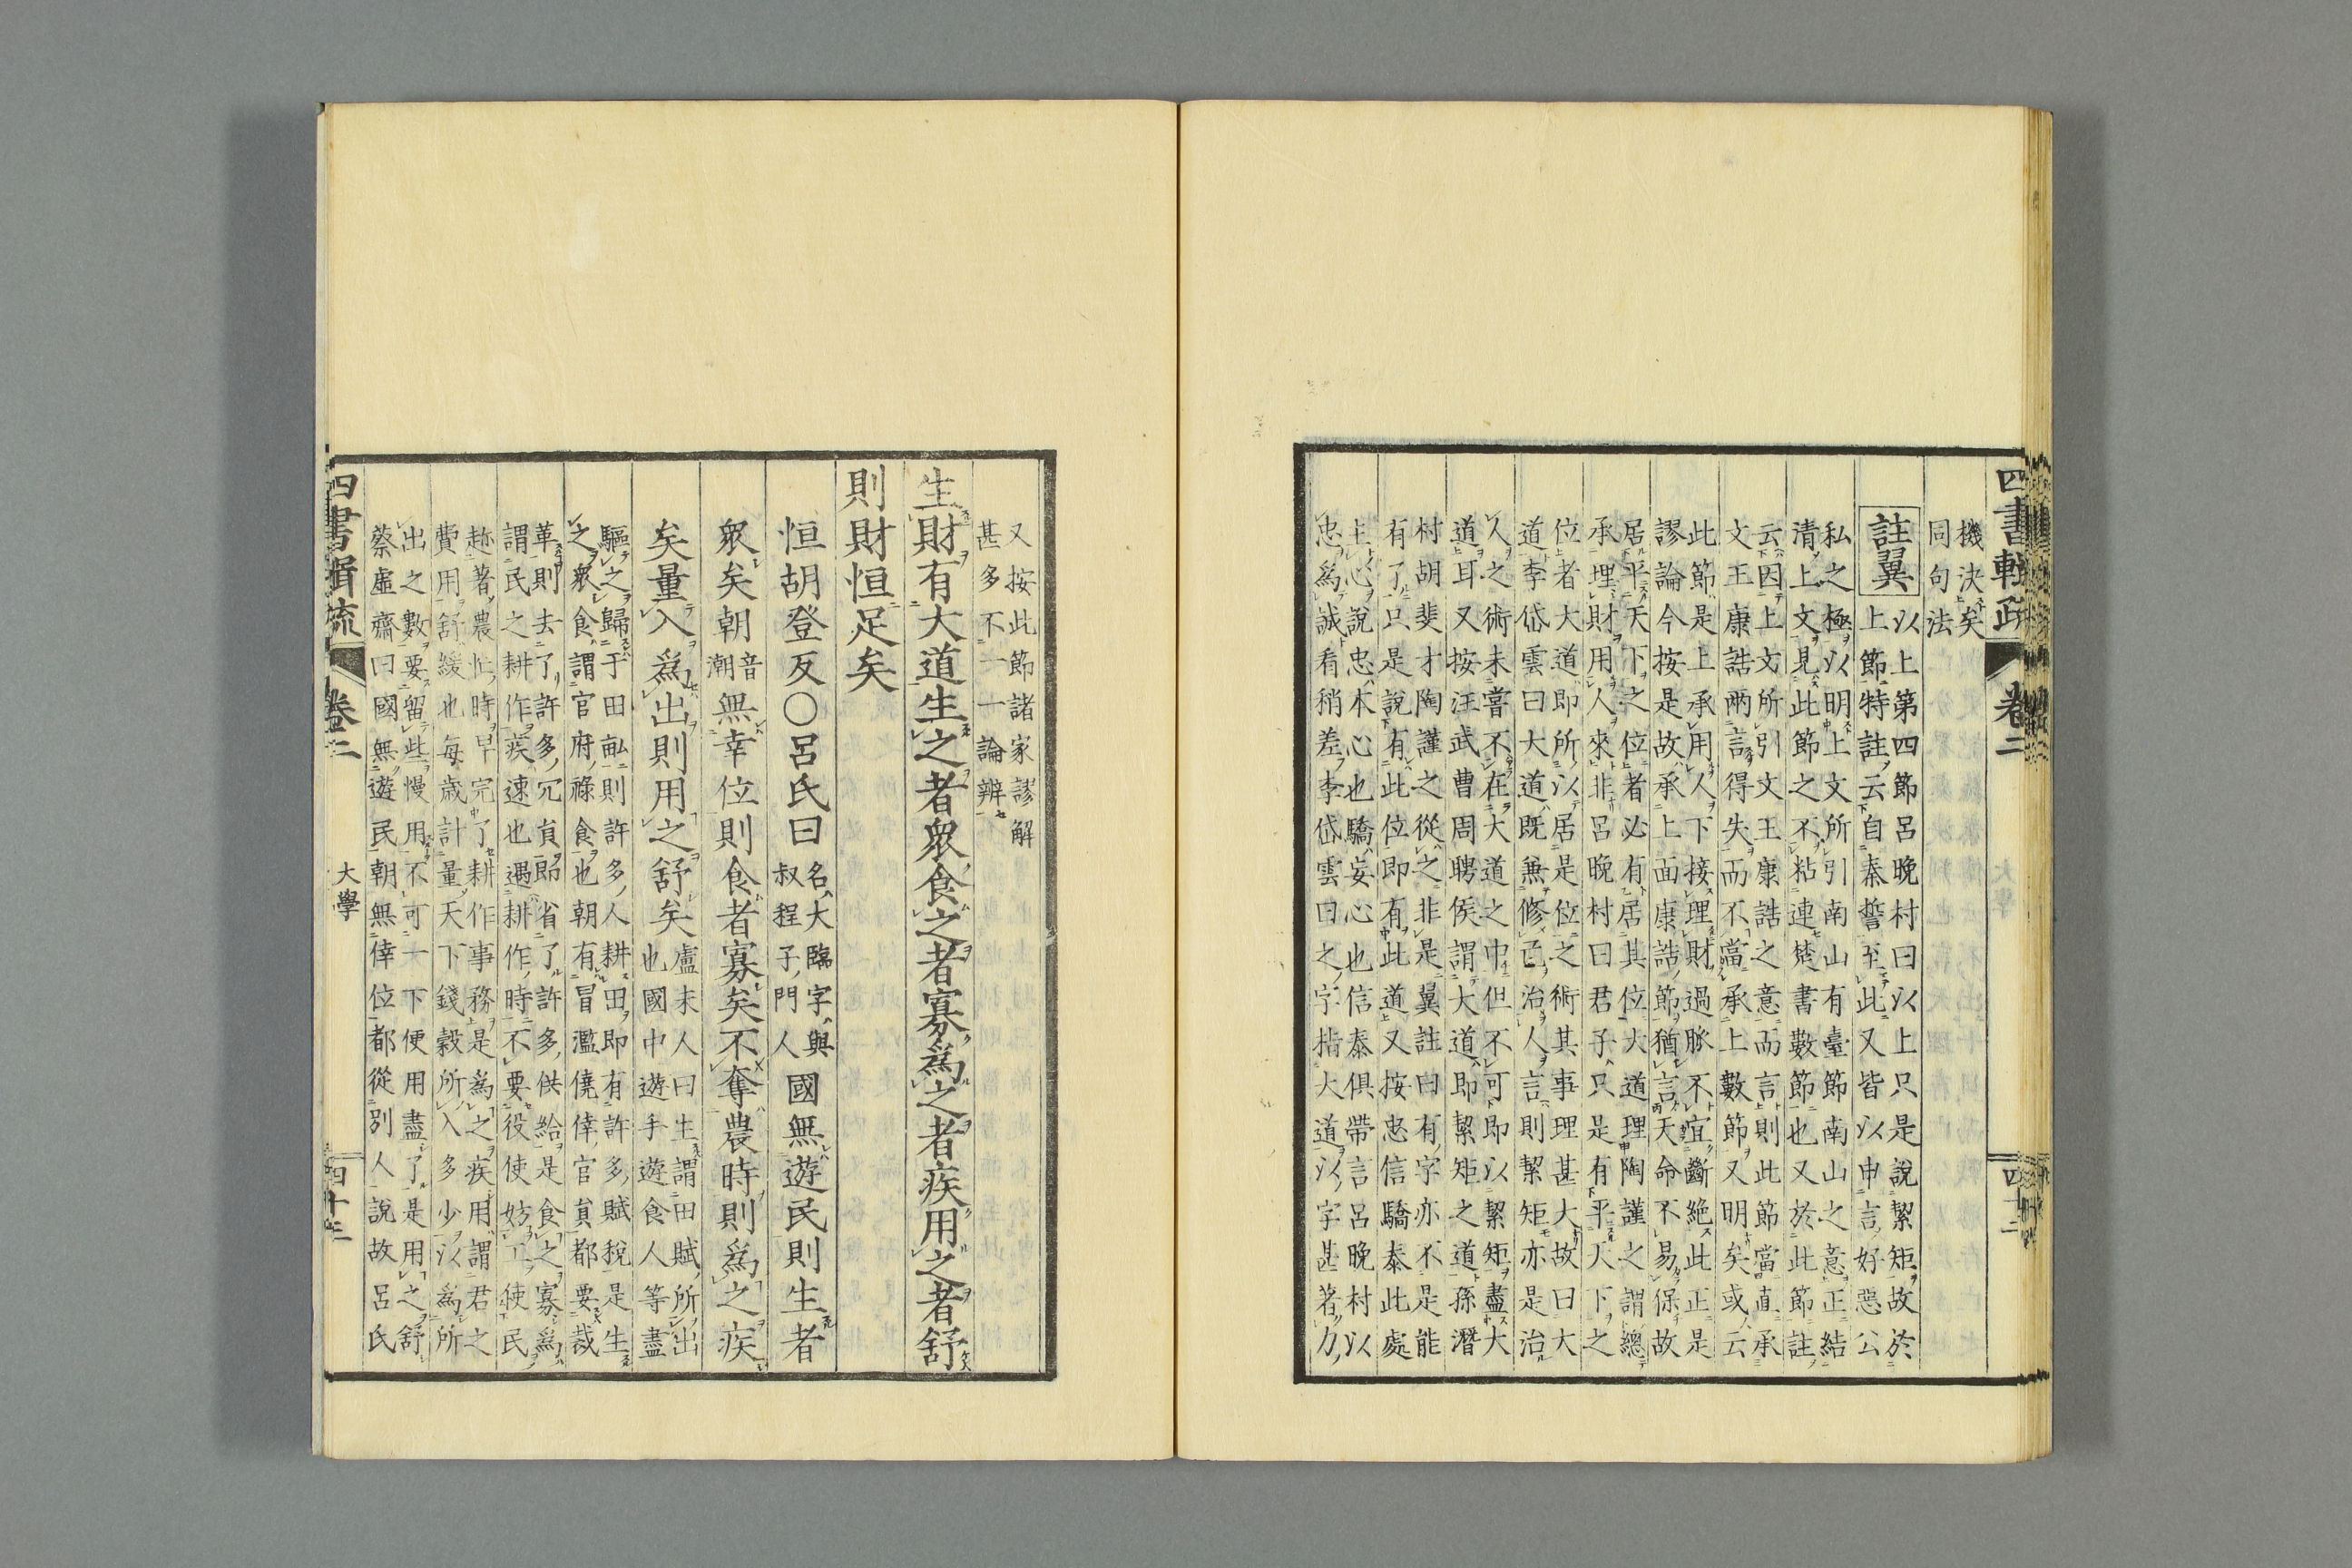 四書輯疏
卷二
四十二
機決矣
同句法
註翼
以上第四節呂晚村曰以上只是說絜矩故於
上節特註云自秦誓至此又皆以申言好惡公
私之極以明上文所引南山有臺節南山之意正結
清上文見此節之不粘連楚書數節也又於此節註
云因上文所引文王康誥之意而言則此節當直承
文王康誥兩言得失而不當承上數節又明矣或云
此節是上承用人下接理財過脉不宜斷絕此正是
謬論今按是故承上面康誥節猶言天命不易保故
居平天下之位者必有居其位大道理陶謹之謂總
承理財用人來非呂晚村曰君子只是有平天下之
位者大道即所以居是位之術其事理甚大故曰大
道李岱雲曰大道既兼修己治人言則絜矩亦是治
人之術未嘗不在大道之中但不可即以絜矩盡大
道耳又按汪武曹周聘侯謂大道即絜矩之道孫潛
村胡斐才陶謹之從之非是翼註曰有字亦不是能
有了只是說有此位即有此道又按忠信驕泰此處
主心說忠本心也驕妄心也信泰俱帶言呂晚村以
忠為誠看稍差李岱雲曰之字指大道以字甚著力
又按此節諸家謬解
甚多不一一論辨
生財有大道生之者衆食之者寡爲之者疾用之者舒
則財恒足矣
恒胡登反〇呂氏曰
名大臨字與
叔程子門人
國無遊民則生者
衆矣朝
音
潮
無幸位則食者寡矣不奪農時則爲之疾
矣量入爲出則用之舒矣
盧未人曰生謂田賦所出
也國中遊手遊食人等盡
驅之歸于田畝則許多人耕田即有許多賦稅是生
之衆食謂官府祿食也朝有冒濫僥倖官員都要裁
革則去了許多冗員節省了許多供給是食之寡爲
謂民之耕作疾速也遇耕作時不要役使妨工使民
趂著農忙時早完了耕作事務是爲之疾用謂君之
費用舒緩也每歳計量天下錢穀所入多少以爲所
出之數要留些慢用不可一下便用盡了是用之舒
蔡虛齋曰國無遊民朝無倖位都從別人說故呂氏
四書輯疏
卷二
大學
四十三